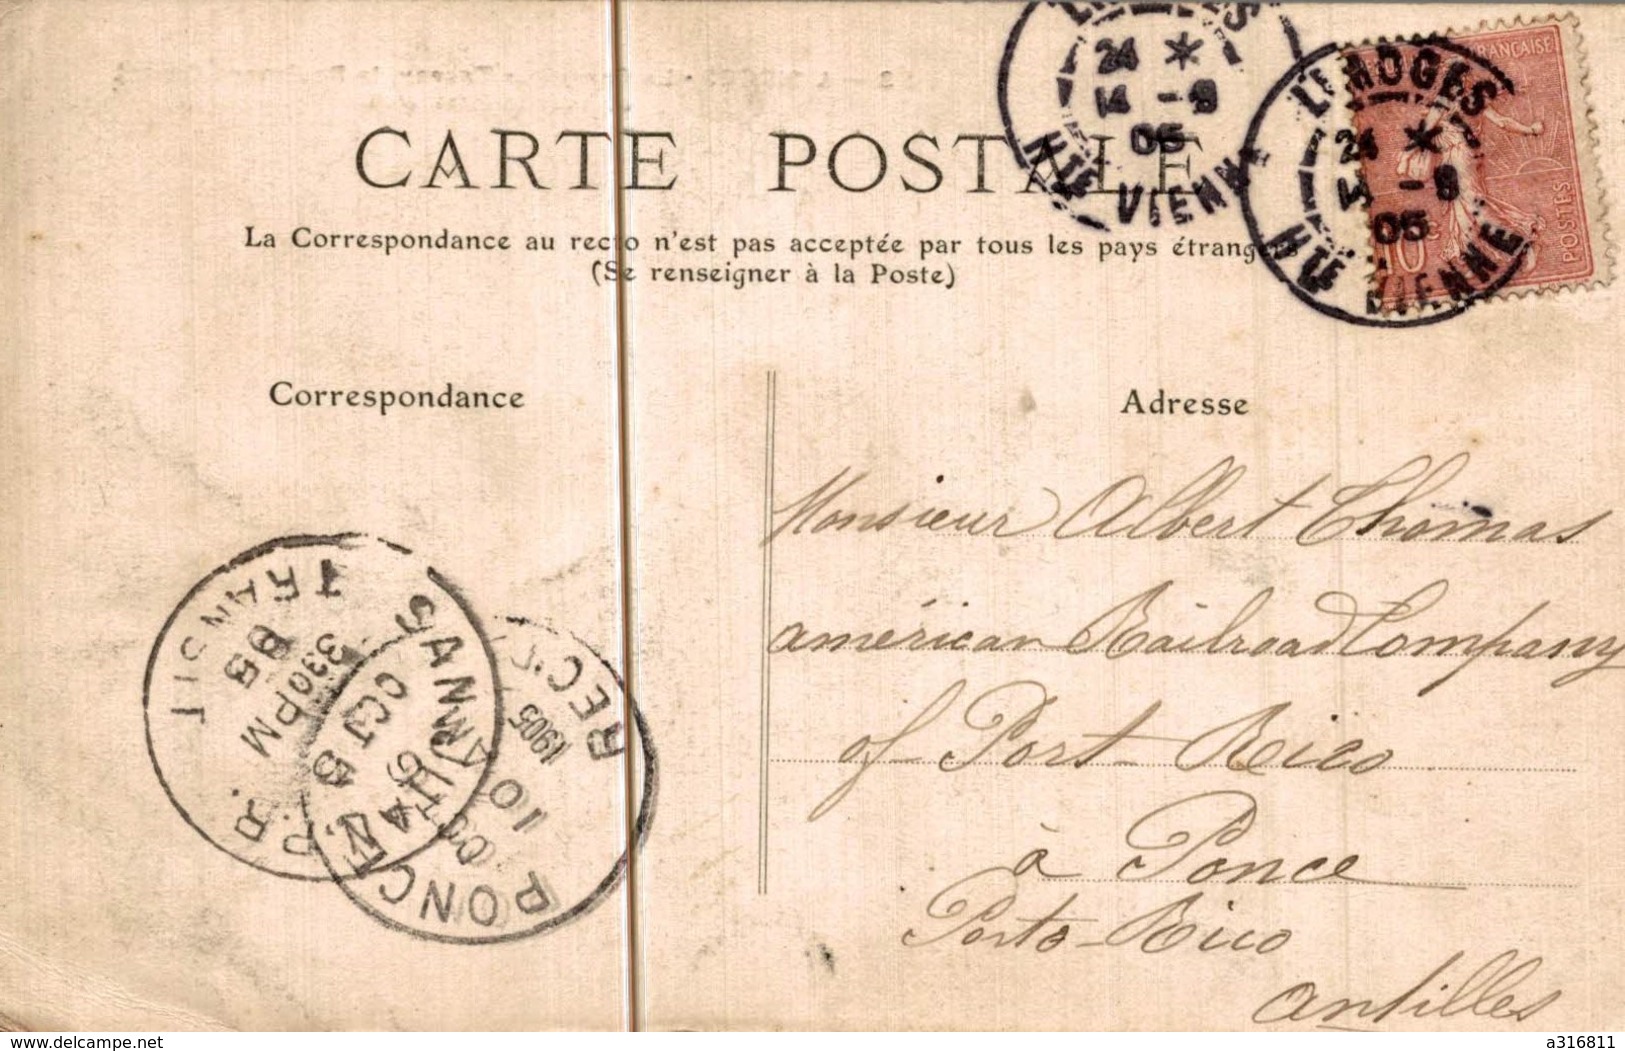 CARTE POSTALE
La Correspondance au recto n'est pas acceptée par tous les pays étrangers
(Se renseigner à la Poste)
Correspondance
Adresse
LIMOGES
24 *
14 - 9
05
HTE VIENNE
LIMOGES
24 *
14 - 9
05
HTE VIENNE
FRANÇAISE
POSTES
10
Monsieur Albert Thomas
américan Railroad Company
of Port-Rico
à Ponce
Porto-Rico
Antilles
SAN JUAN, P.R.
OCT 5
330PM
05
TRANSIT
PONCE
OCT 6
10 AM
1905
REC'D
www.delcampe.net
a316811